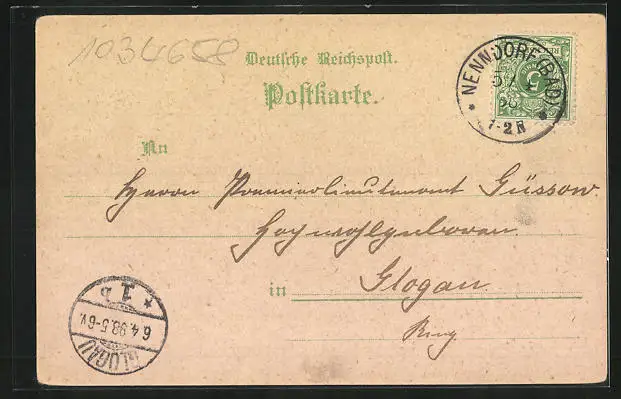 1034658
Deutsche Reichspost.
Postkarte.
NENNDORF (BAD)
1-2N
5
An
Herrn Premierlieutenant Güssow
Hochwohlgeboren
in Glogau
Ring
GLOGAU
6.4.98.5-6V.
* 1 b